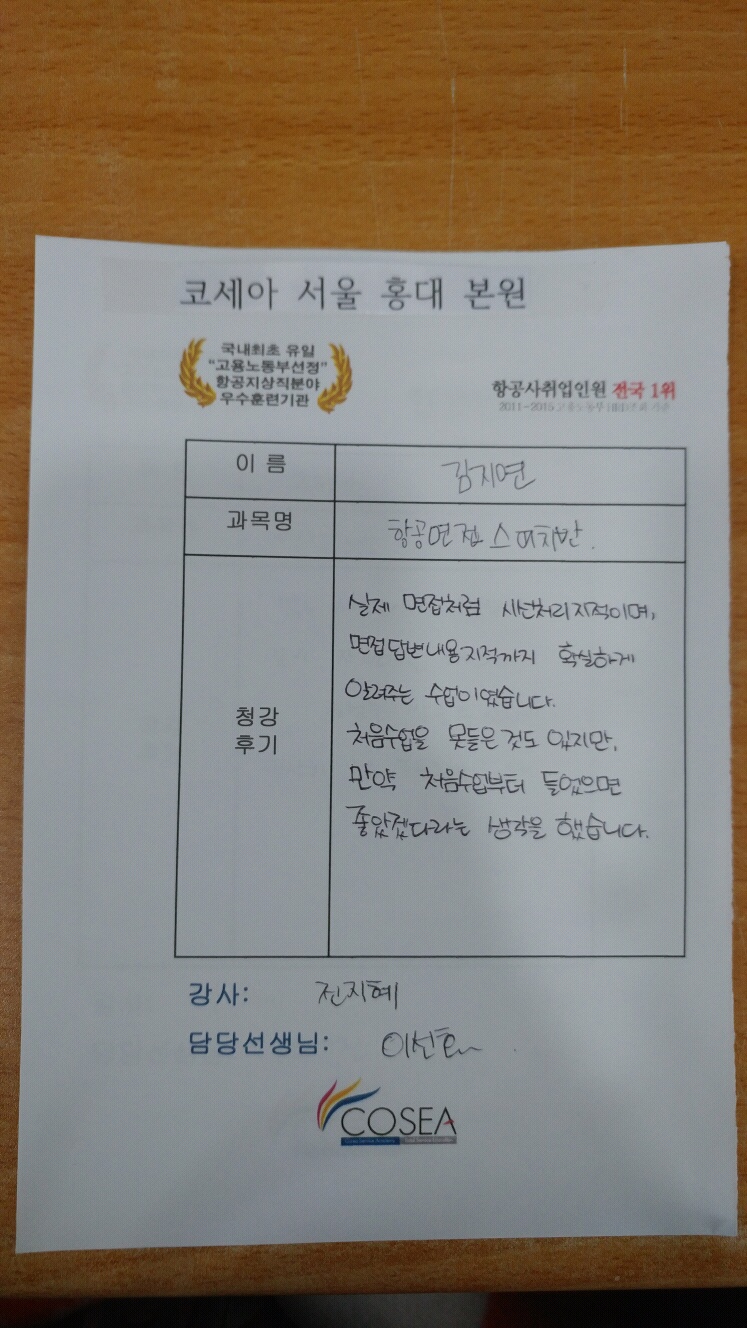 코세아 서울 홍대 본원
국내최초 유일
"고용노동부선정"
항공지상직분야
우수훈련기관
항공사취업인원 전국 1위
2011-2015 고용노동부 HRD조회 기준
이 름
김지연
과목명
항공면접 스피치반.
청강
후기
실제 면접처럼 시선처리지적이며,
면접답변내용지적까지 확실하게
알려주는 수업이였습니다.
처음수업을 못들은것도 있지만,
만약 처음수업부터 들었으면
좋았겠다라는 생각을 했습니다.
강사: 진지혜
담당선생님:
COSEA